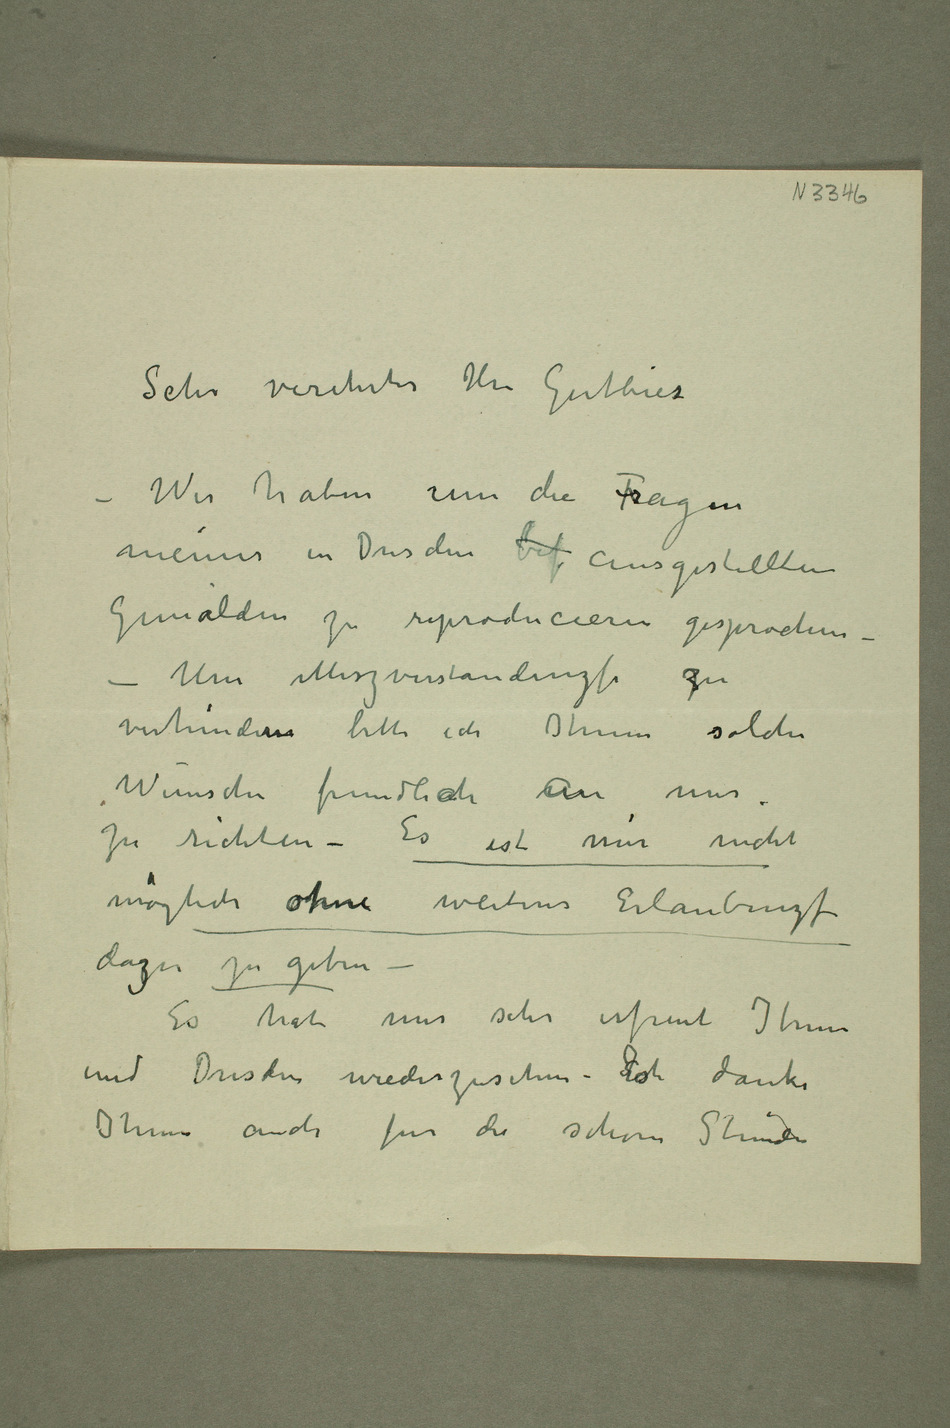 N 3346
Sehr verehrter Herr Gutbier
– Wir haben um die Fragen
meiner in Dresden bef ausgestellten
Gemälden zu reproducieren gesprochen –
– Um Miszverständnizse zu
verhindern bitte ich Ihnen solche
Wünsche freundlich an mir
zu richten – Es ist mir nicht
möglich ohne weiteres Erlaubnizs
dazu zu geben –
Es hat mir sehr erfreut Ihnen
und Dresden wiederzusehen – Ich danke
Ihnen auch für die schöne Stunden